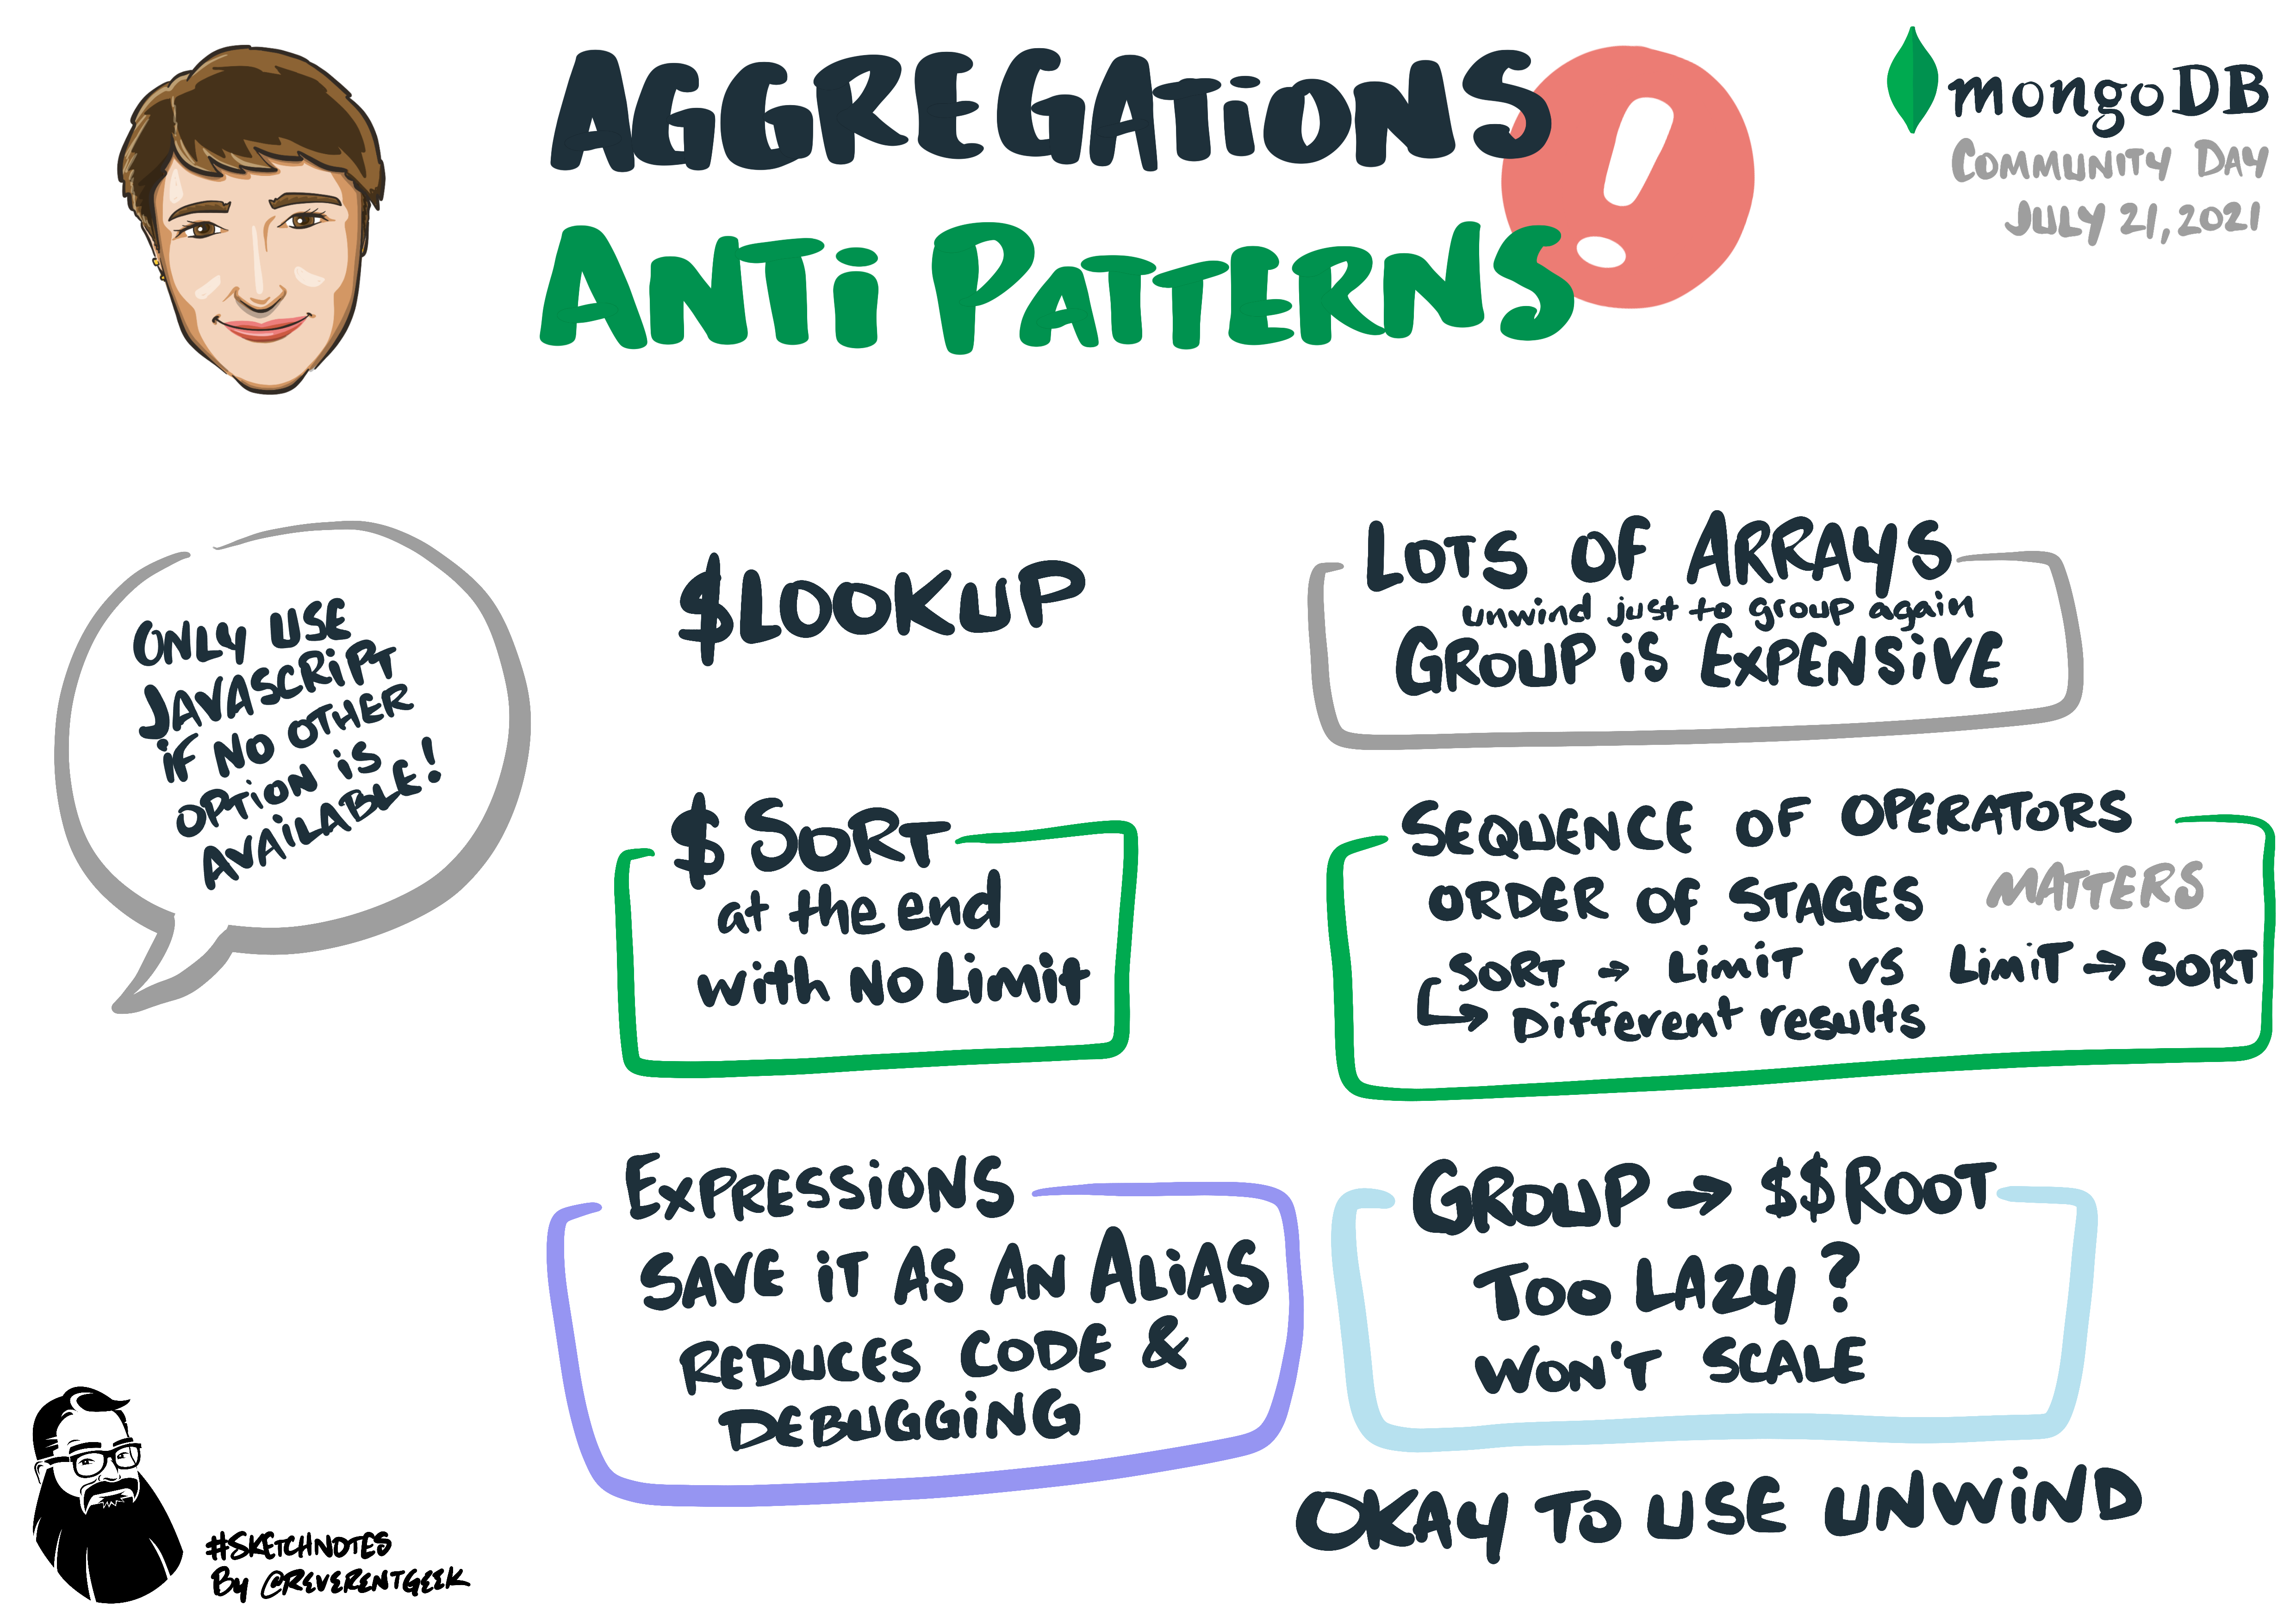 AGGREGATiONS
ANTi PATTERNS
!
mongoDB
COMMUNITY DAY
JULY 21, 2021
ONLY USE
JAVASCRiPT
iF NO OTHER
OPTiON iS
AVAiLABLE!
$LOOKUP
LOTS OF ARRAYS
unwind just to group again
GROUP iS EXPENSiVE
$ SORT
at the end
with No Limit
SEQUENCE OF OPERATORS
ORDER OF STAGES MATTERS
SORT → LiMiT VS LiMiT → SORT
↳ Different results
EXPRESSiONS
SAVE iT AS AN ALiAS
REDUCES CODE &
DEBUGGiNG
GROUP → $$ROOT
TOO LAZY ?
WON'T SCALE
OKAY TO USE UNWiND
#SKETCHNOTES
By @REVERENTGEEK